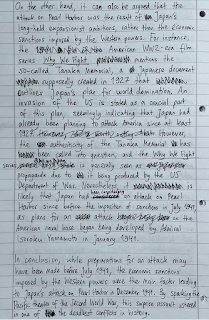 On the other hand, it can also be argued that the
attack on Pearl Harbor was the result of Japan's
long-held expansionist ambitions, rather than the economic
sanctions imposed by the Western powers. For instance,
the American WW2-era film
series Why We Fight mentions the
so-called Tanaka Memorial, a Japanese document
supposedly created in 1927 that
outlines Japan's plan for world domination. An
invasion of the US is stated as a crucial part
of this plan, seemingly indicating that Japan had
already been planning to attack America since at least
1927. However,
the authenticity of the Tanaka Memorial has
been called into question, and the Why We Fight
series is possibly seen as
propaganda due to it being produced by the US
Department of War. Nevertheless, it is
likely that Japan had an attack on Pearl
Harbor since before the imposition of sanctions in July 1941
as plans for an attack on the
American naval base began being developed by Admiral
Isoroku Yamamoto in January 1941.
In conclusion, while preparations for an attack may
have been made before July 1941, the economic sanctions
imposed by the Western powers were the main factor leading
to Japan's attack on Pearl Harbor in December 1941. By sparking the
Pacific theatre of the Second World War, this surprise attack ushered
in one of the deadliest conflicts in history.